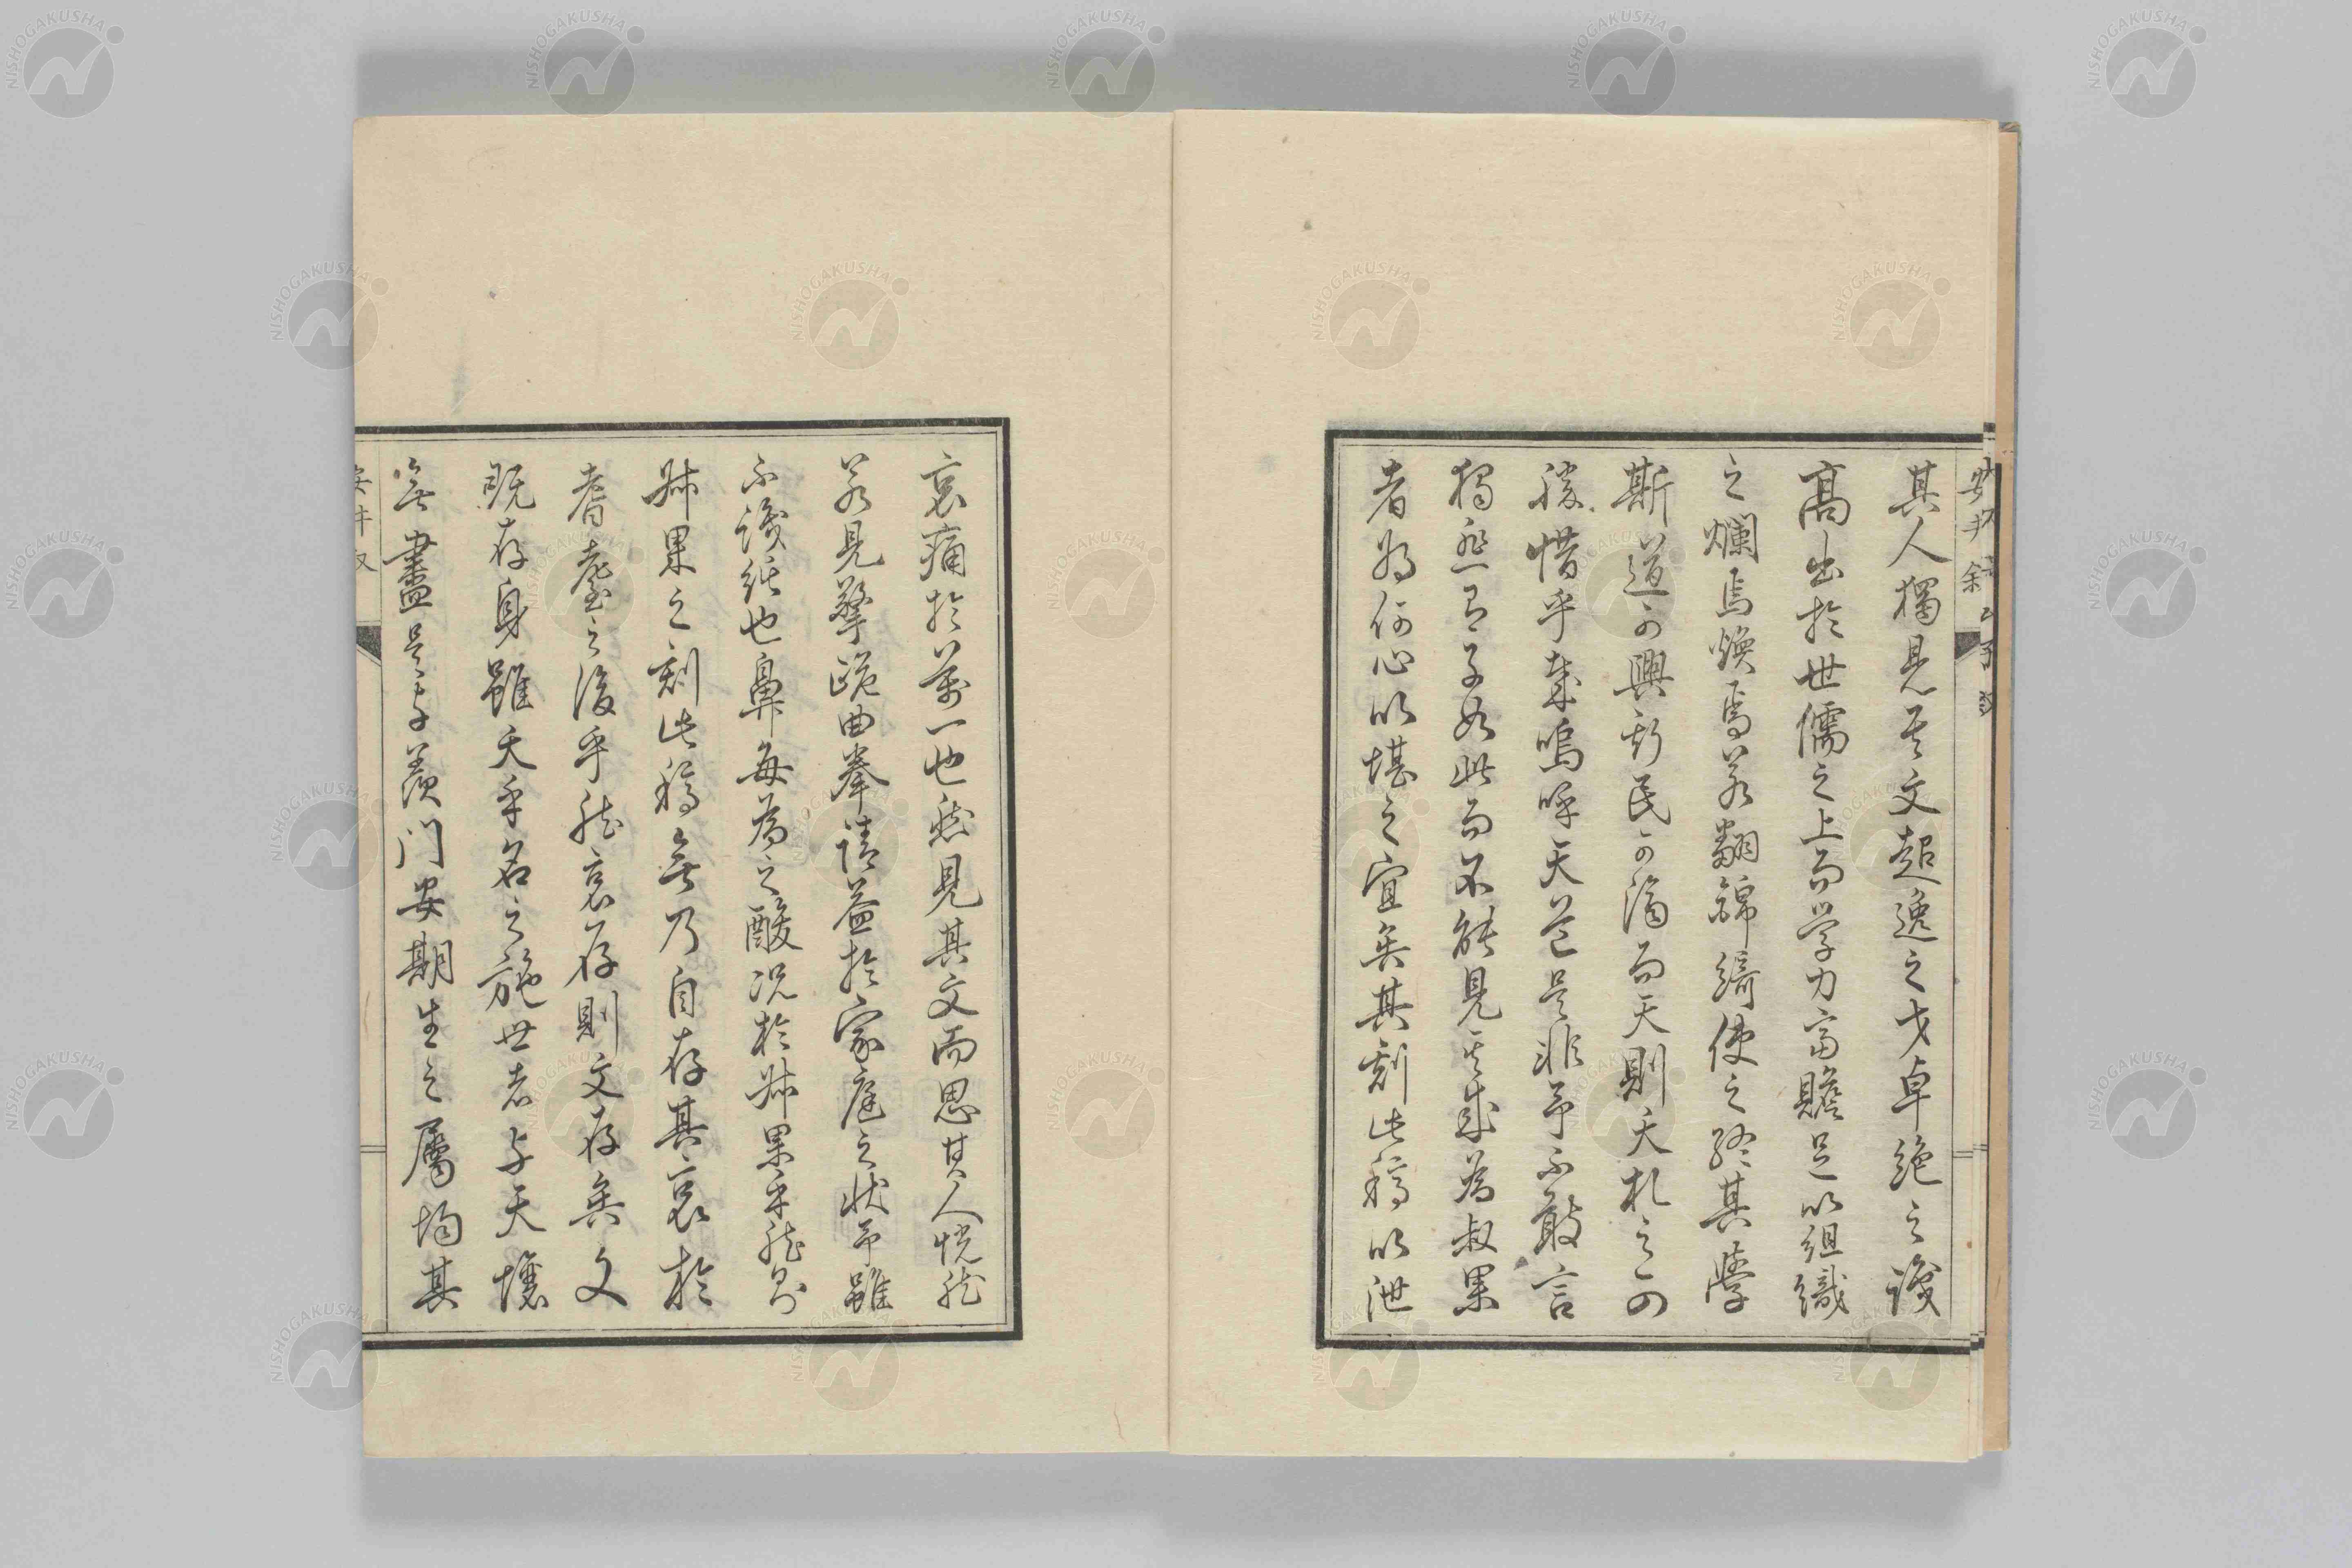 其人獨見其文超逸之才卓絶之識
高出於世儒之上而学力富贍足以組織
之爛焉煥焉若翻錦綺使之終其學
斯道可興斯民可濟而天則夭札之可
勝惜乎哉嗚呼天道是非予不敢言
獨悲有子如此而不能見其成為叔果
者為何心以堪之宜矣其刻此稿以泄
哀痛於萬一也然見其文而思其人恍然
若見擎跽曲拳請益於家庭之状予雖
不識紘也鼻每為之酸況於叔果乎然則
叔果之刻此稿無乃自存其哀於
耆耋之後乎然哀存則文存矣文
既存身雖夭乎名之施世者与天壤
無盡是其子羨門安期生之屬均其
安井叙
NISHOGAKUSHA